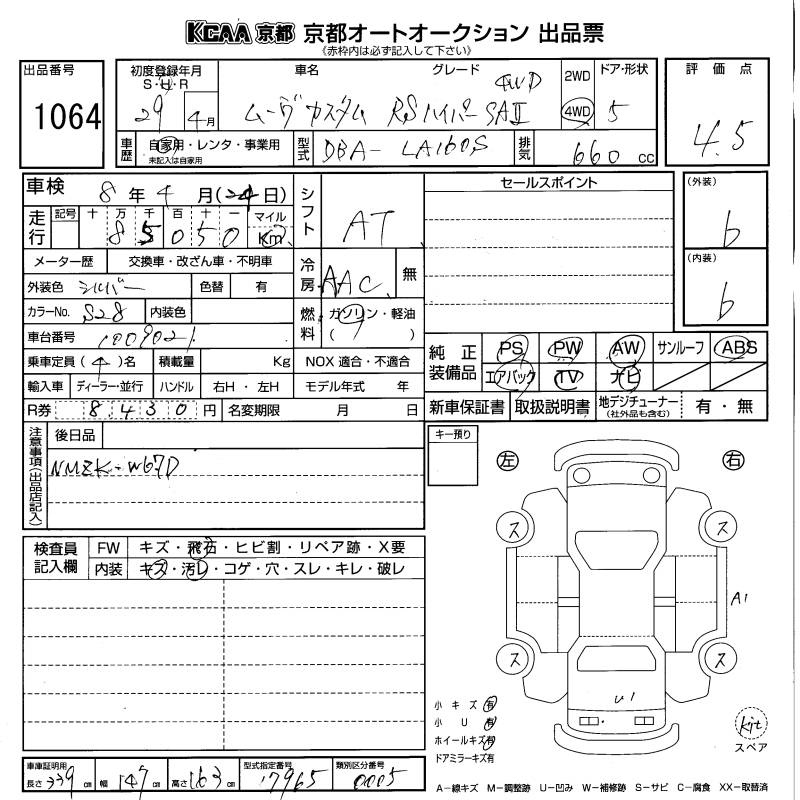 KCAA 京都 京都オートオークション 出品票
《赤枠内は必ず記入して下さい》
出品番号
1064
初度登録年月
S・H・R
29 4月
車名
ムーヴカスタム
グレード
4WD
RSハイパーSAⅡ
2WD
4WD
ドア・形状
5
評価点
4.5
車歴
自家用・レンタ・事業用
未記入は自家用
型式
DBA-LA160S
排気
660 cc
車検
8年4月(24日)
走行
記号 十 万 千 百 十 一 マイル
85050 Km
シフト
AT
メーター歴 交換車・改ざん車・不明車
冷房
AAC 無
外装色 シルバー 色替 有
カラーNo. S28 内装色
燃料
ガソリン・軽油
( )
車台番号 1009021
乗車定員(4)名 積載量 Kg NOX 適合・不適合
輸入車 ディーラー・並行 ハンドル 右H・左H モデル年式 年
R券 8,430円 名変期限 月 日
セールスポイント
(外装)
b
(内装)
b
純正装備品
PS PW AW サンルーフ ABS
エアバック TV ナビ
新車保証書 取扱説明書 地デジチューナー 有・無
(社外品も含む)
注意事項(出品店記入)
後日品
NMZK-W67D
キー預り
左 右
ス ス
A1
ス ス
U1
検査員記入欄
FW キズ・飛石・ヒビ割・リペア跡・X要
内装 キズ・汚レ・コゲ・穴・スレ・キレ・破レ
小キズ有
小U有
ホイールキズ有
ドアミラーキズ有
kit
スペア
車庫証明用
長さ339cm 幅147cm 高さ163cm
型式指定番号
17965
類別区分番号
0005
A-線キズ M-調整跡 U-凹み W-補修跡 S-サビ C-腐食 XX-取替済